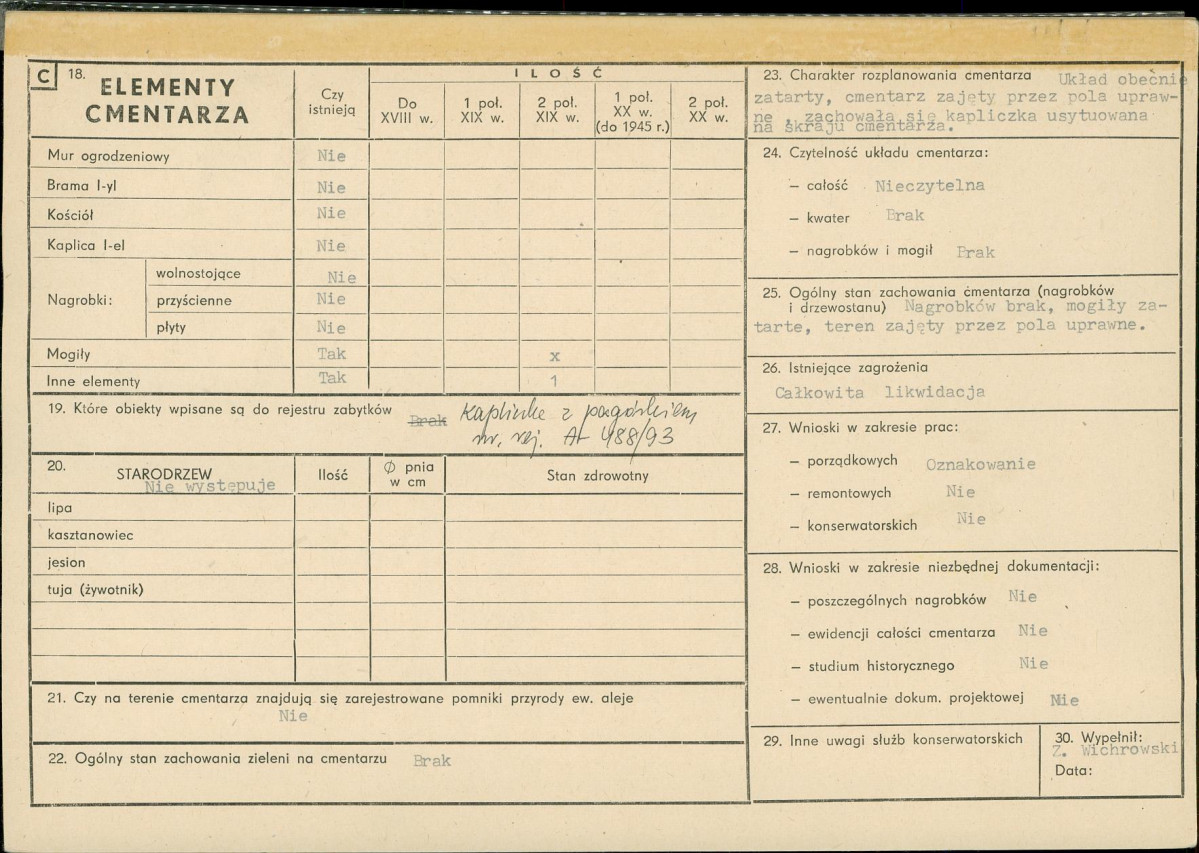 C 18. ELEMENTY
CMENTARZA
Czy
istnieją
ILOŚĆ
Do
XVIII w.
1 poł.
XIX w.
2 poł.
XIX w.
1 poł.
XX w.
(do 1945 r.)
2 poł.
XX w.
Mur ogrodzeniowy Nie
Brama I-yl Nie
Kościół Nie
Kaplica I-el Nie
Nagrobki:
wolnostojące Nie
przyścienne Nie
płyty Nie
Mogiły Tak x
Inne elementy Tak 1
19. Które obiekty wpisane są do rejestru zabytków Brak Kapliczka z pagórkiem
nr. rej. A- 488/93
20. STARODRZEW
Nie występuje
Ilość
Ø pnia
w cm
Stan zdrowotny
lipa
kasztanowiec
jesion
tuja (żywotnik)
21. Czy na terenie cmentarza znajdują się zarejestrowane pomniki przyrody ew. aleje
Nie
22. Ogólny stan zachowania zieleni na cmentarzu Brak
23. Charakter rozplanowania cmentarza Układ obecnie
zatarty, cmentarz zajęty przez pola upraw-
ne , zachowała się kapliczka usytuowana
na skraju cmentarza.
24. Czytelność układu cmentarza:
– całość Nieczytelna
– kwater Brak
– nagrobków i mogił Brak
25. Ogólny stan zachowania cmentarza (nagrobków
i drzewostanu) Nagrobków brak, mogiły za-
tarte, teren zajęty przez pola uprawne.
26. Istniejące zagrożenia
Całkowita likwidacja
27. Wnioski w zakresie prac:
– porządkowych Oznakowanie
– remontowych Nie
– konserwatorskich Nie
28. Wnioski w zakresie niezbędnej dokumentacji:
– poszczególnych nagrobków Nie
– ewidencji całości cmentarza Nie
– studium historycznego Nie
– ewentualnie dokum. projektowej Nie
29. Inne uwagi służb konserwatorskich
30. Wypełnił:
Z. Wichrowski
Data: